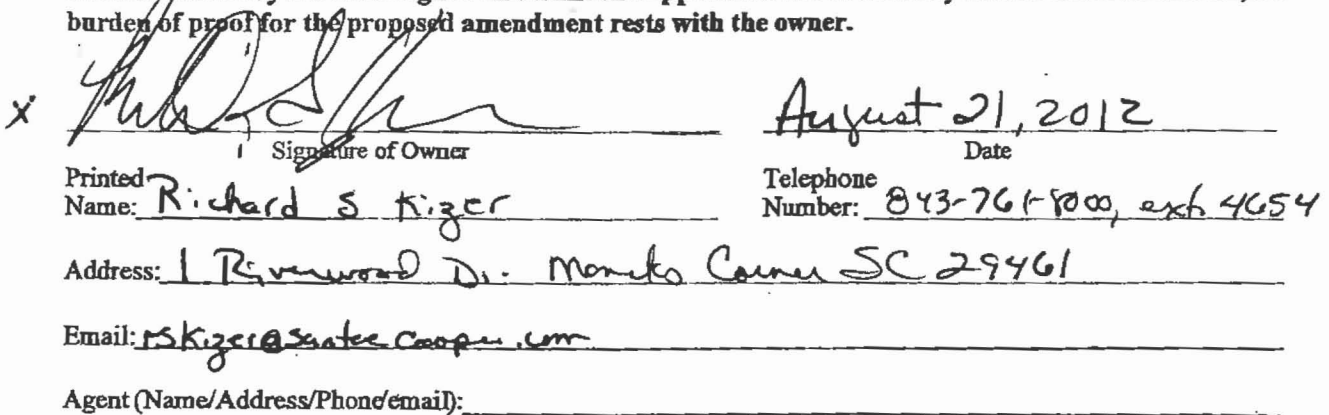 burden of proof for the proposed amendment rests with the owner.
x
August 21, 2012
Signature of Owner
Date
Printed Name: Richard S Kizer
Telephone Number: 843-761-8000, ext 4654
Address: 1 Riverwood Dr. Moncks Corner SC 29461
Email: rskizer@santeecooper.com
Agent (Name/Address/Phone/email):